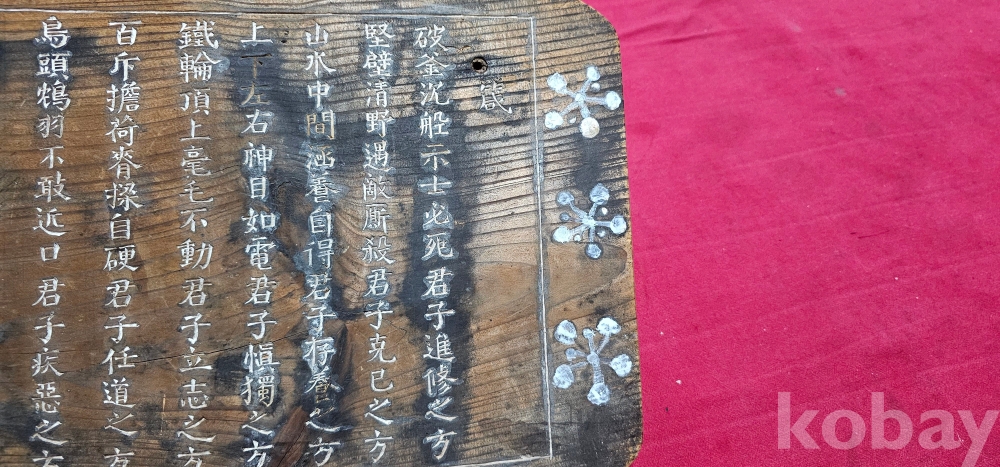 箴
破釜沉船示士必死君子進修之方
堅壁清野遇敵廝殺君子克己之方
山水中間涵養自得君子存養之方
上下左右神目如電君子愼獨之方
鐵輪頂上毫毛不動君子立志之方
百斤擔荷脊樑自硬君子任道之方
烏頭鴆羽不敢近口君子疾惡之方
kobay